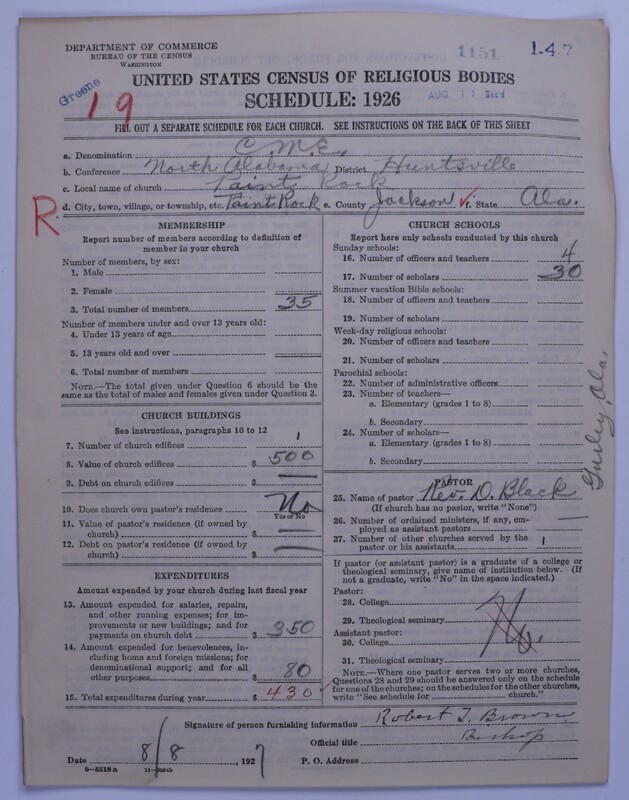 DEPARTMENT OF COMMERCE
BUREAU OF THE CENSUS
WASHINGTON
1151
1-4-7
Greene
19
UNITED STATES CENSUS OF RELIGIOUS BODIES
SCHEDULE: 1926
AUG 11 Rec'd
FILL OUT A SEPARATE SCHEDULE FOR EACH CHURCH. SEE INSTRUCTIONS ON THE BACK OF THIS SHEET
a. Denomination C.M.E.
b. Conference North Alabama District Huntsville
c. Local name of church Paint Rock
R
d. City, town, village, or township, etc. Paint Rock e. County Jackson ✓ f. State Ala.
MEMBERSHIP
Report number of members according to definition of
member in your church
Number of members, by sex:
1. Male
2. Female
3. Total number of members 35
Number of members under and over 13 years old:
4. Under 13 years of age
5. 13 years old and over
6. Total number of members
NOTE.—The total given under Question 6 should be the
same as the total of males and females given under Question 3.
CHURCH BUILDINGS
See instructions, paragraphs 10 to 12
7. Number of church edifices 1
8. Value of church edifices $ 500
9. Debt on church edifices $ —
10. Does church own pastor's residence No
Yes or No
11. Value of pastor's residence (if owned by
church) $ —
12. Debt on pastor's residence (if owned by
church) $ —
EXPENDITURES
Amount expended by your church during last fiscal year
13. Amount expended for salaries, repairs,
and other running expenses; for im-
provements or new buildings; and for
payments on church debt $ 350
14. Amount expended for benevolences, in-
cluding home and foreign missions; for
denominational support; and for all
other purposes $ 80
15. Total expenditures during year $ 430
CHURCH SCHOOLS
Report here only schools conducted by this church
Sunday schools:
16. Number of officers and teachers 4
17. Number of scholars 30
Summer vacation Bible schools:
18. Number of officers and teachers
19. Number of scholars
Week-day religious schools:
20. Number of officers and teachers
21. Number of scholars
Parochial schools:
22. Number of administrative officers
23. Number of teachers—
a. Elementary (grades 1 to 8)
b. Secondary
24. Number of scholars—
a. Elementary (grades 1 to 8)
b. Secondary
PASTOR
25. Name of pastor Rev. D. Black
(If church has no pastor, write "None")
26. Number of ordained ministers, if any, em-
ployed as assistant pastors —
27. Number of other churches served by the
pastor or his assistants 1
If pastor (or assistant pastor) is a graduate of a college or
theological seminary, give name of institution below. (If
not a graduate, write "No" in the space indicated.)
Pastor:
28. College
29. Theological seminary No.
Assistant pastor:
30. College
31. Theological seminary
NOTE.—Where one pastor serves two or more churches,
Questions 28 and 29 should be answered only on the schedule
for one of the churches; on the schedules for the other churches,
write "See schedule for church."
Gurley, Ala.
Signature of person furnishing information Robert T. Brown,
Official title Bishop
Date 8/8, 1927 P. O. Address